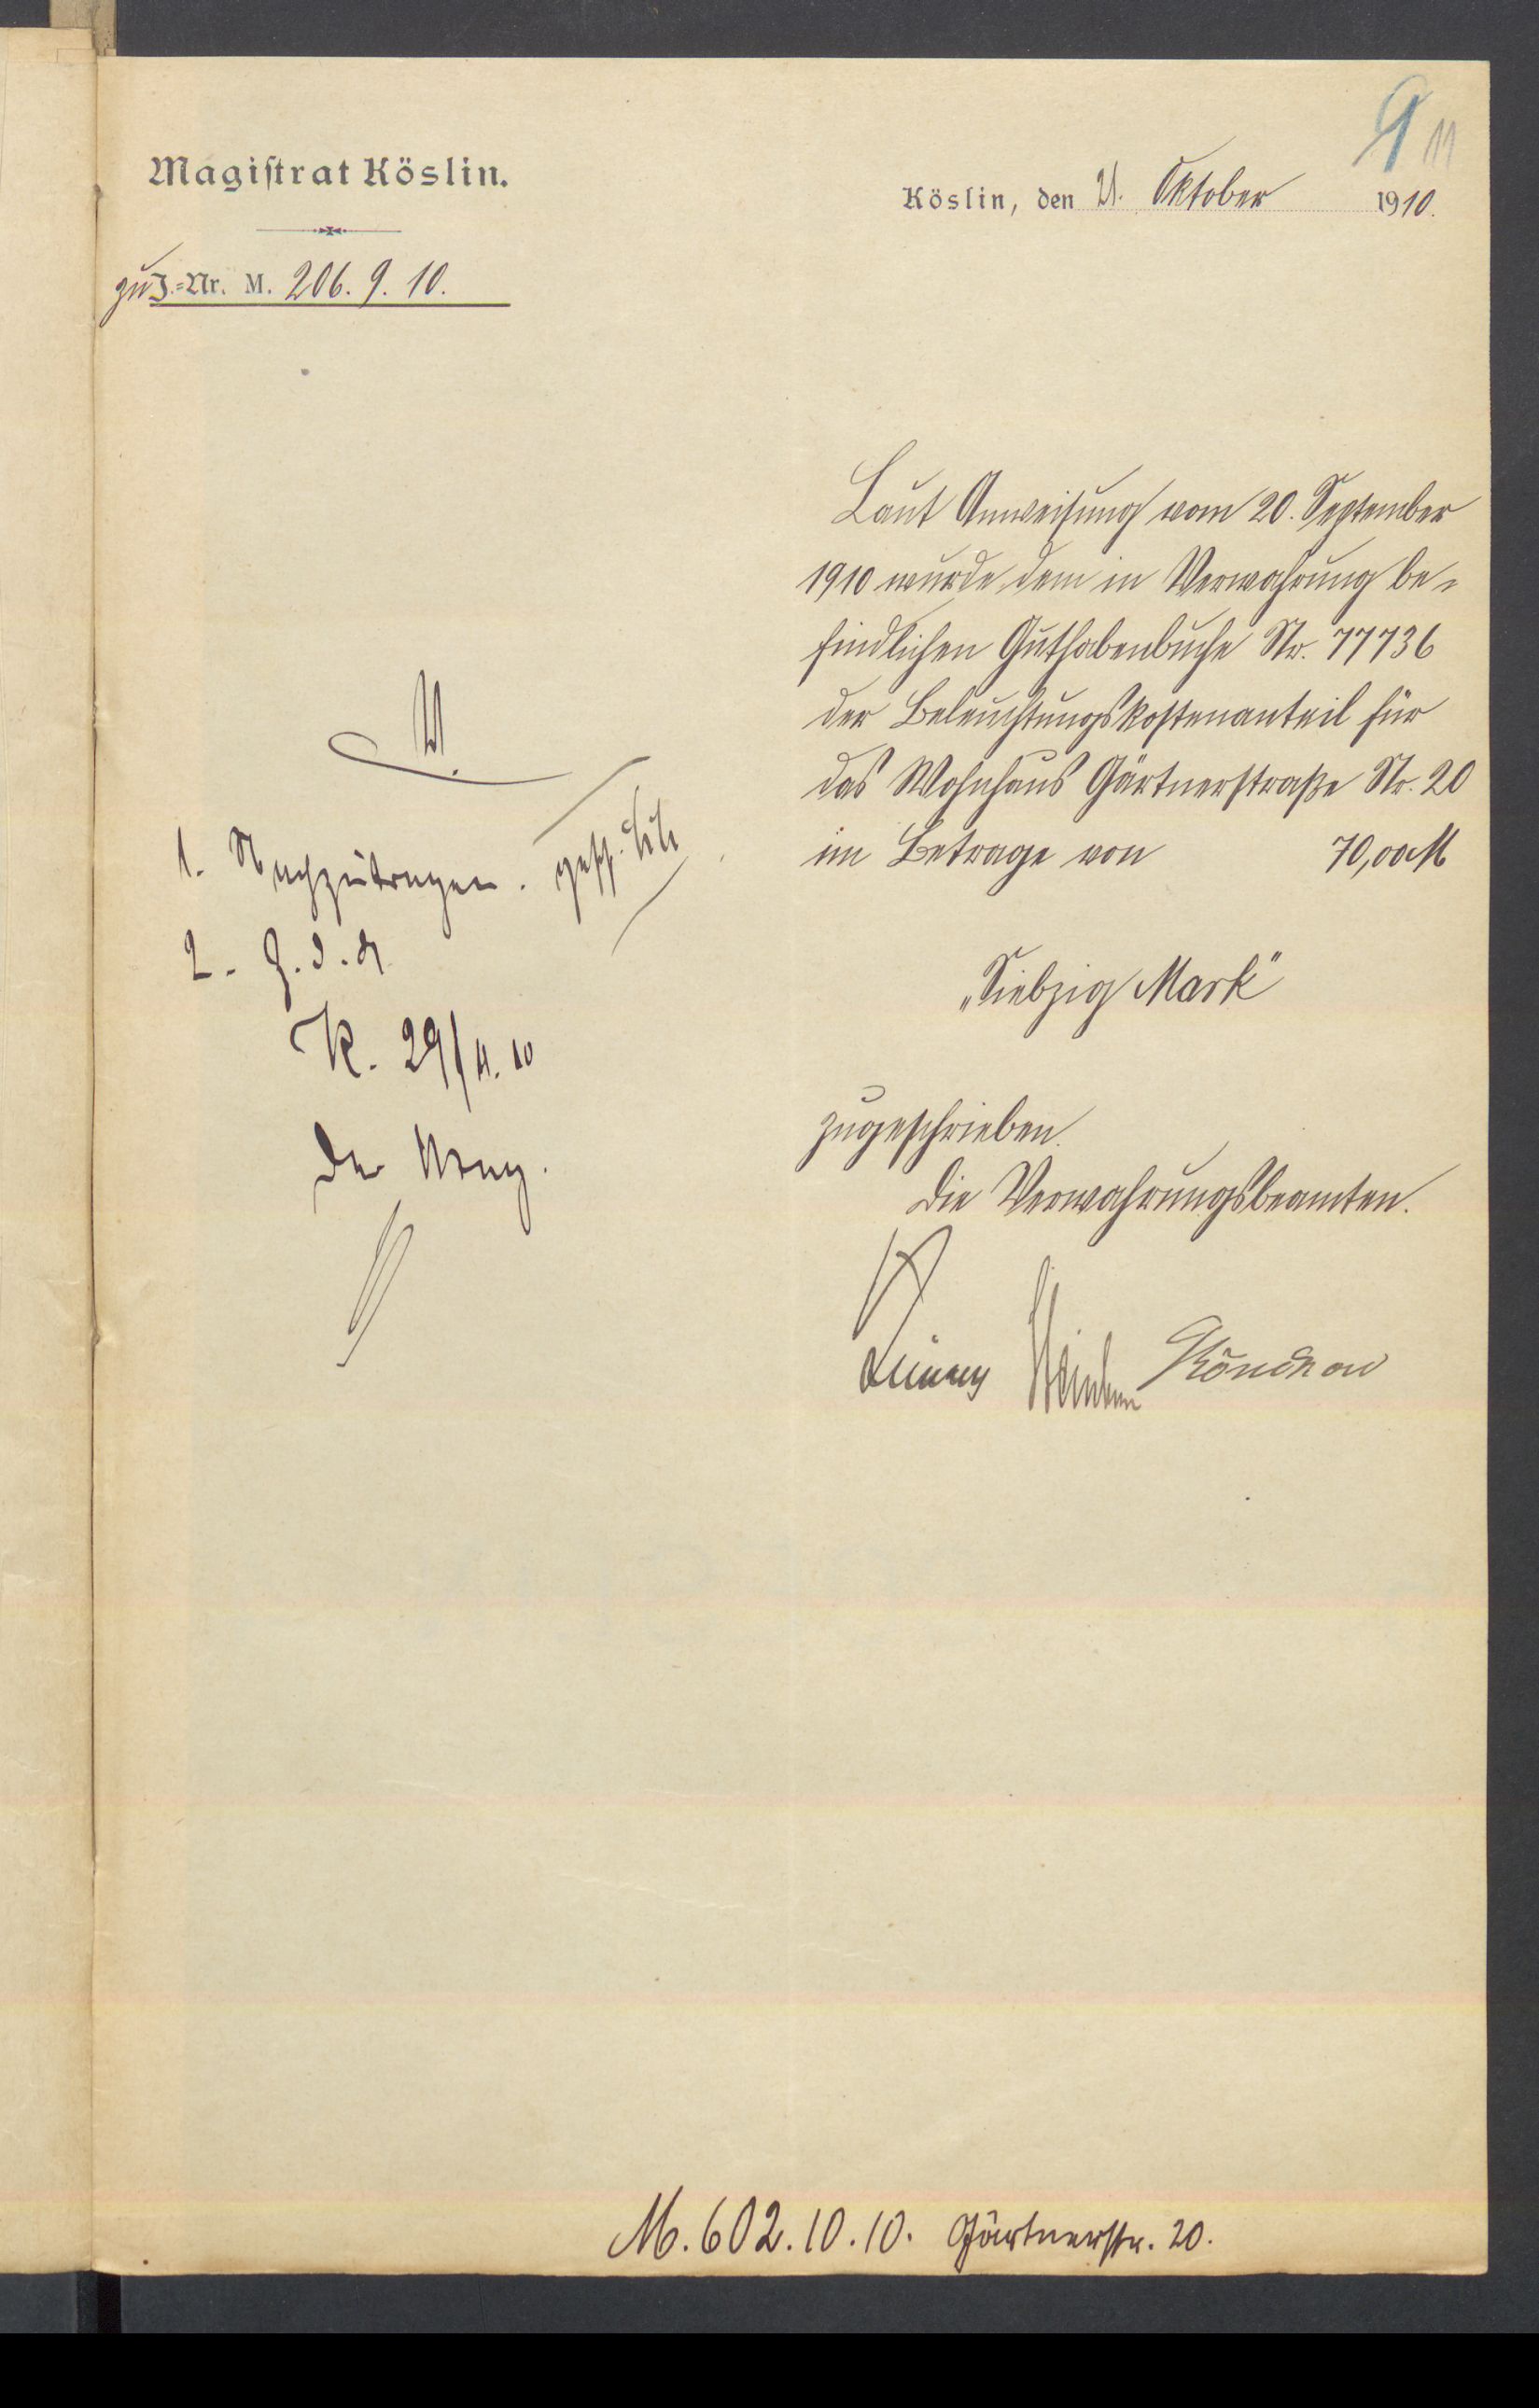 9 11
Magistrat Köslin.
Köslin, den 21. Oktober 1910.
zu J.-Nr. M. 206. 9. 10.
Laut Anweisung vom 20. September
1910 wurde dem in Verwahrung be-
findlichen Guthabenbuche Nr. 77736
der Beleuchtungskostenanteil für
das Wohnhaus Gärtnerstraße Nr. 20
im Betrage von 70,00 M
„Siebzig Mark"
zugeschrieben.
Die Verwahrungsbeamten.
V.
1. Nachzutragen. gesch.
2. Z. d. A.
K. 29/11. 10
Der Mag.
M. 602. 10. 10. Gärtnerstr. 20.